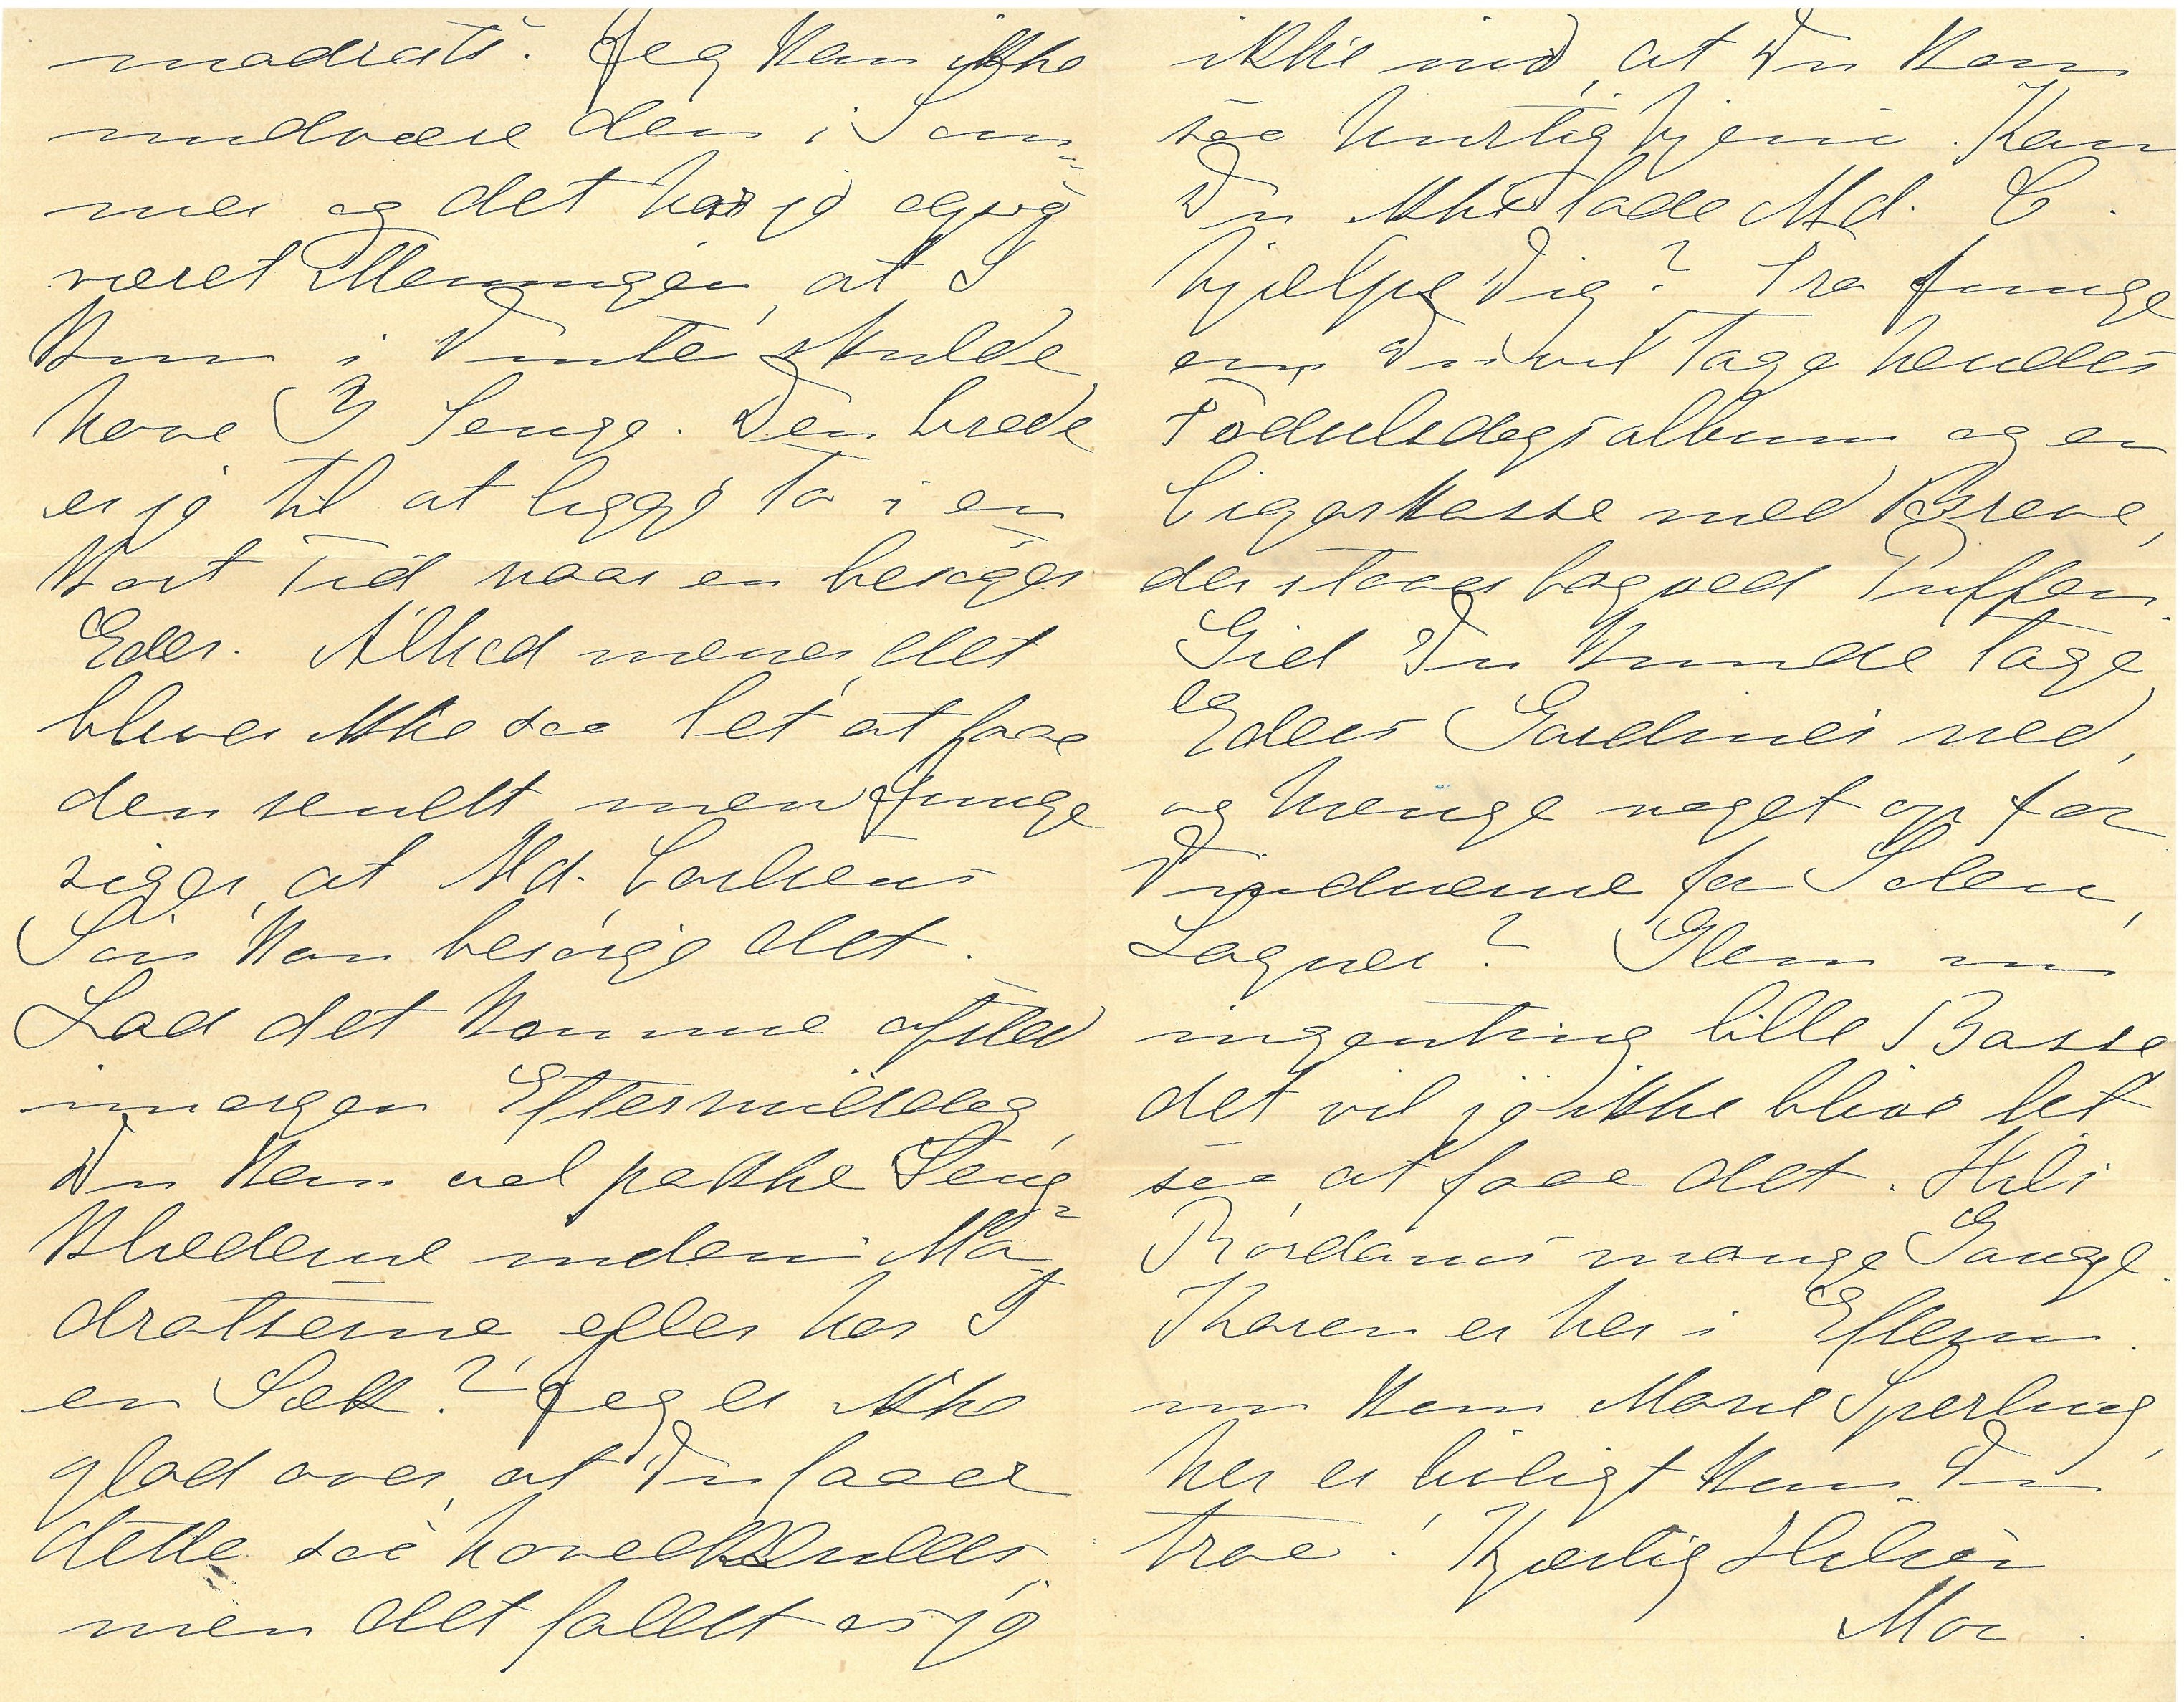 madrats. Jeg kan ikke
undvære den i Som-
mer og det har jo ogsaa
været Meningen, at I
kun i Vinter skulde
have 3 Senge. Den brede
er jo til at ligge to i en
kort Tid naar en besøger
Eder. Alhed mener, det
bliver ikke saa let at faae
den sendt, men Junge
siger, at Md. Carlsens
Søn kan besørge det.
Lad det komme afsted
imorgen Eftermiddag,
Du kan vel pakke Seng-
klæderne inden i Ma-
dratserne, eller har I
en Sæk? Jeg er ikke
glad over, at Du faaer
dette saa hovedkulds,
men det faldt os jo
ikke ind, at Du kom
saa hurtig hjem. Kan
Du ikke lade Md. C.
hjælpe Dig? Fra Junge
om Du vil tage hendes
Fødselsdagsalbum og en
Cigarkasse med Breve,
der staaer bag ved Puffen.
Gid Du kunde tage
Eders Gardiner ned,
og hænge noget op for
Vinduerne for Solen,
Lagner? Glem nu
ingenting lille Basse
det vil jo ikke blive let
saa at faae det. Hils
Rørdams mange Gange.
Karen er her i Efterm.
nu kom Marie Sperling,
her er livligt kan Du
troe! Kjærlig Hilsen
Mor.